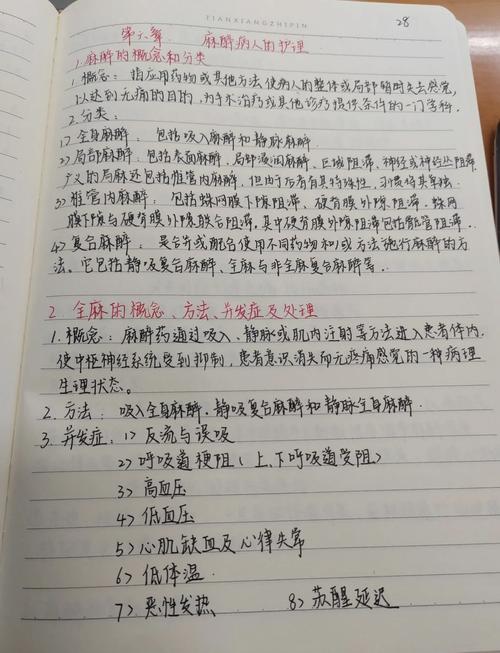 TIANXIANGZHIPIN
28
第六章 麻醉病人的护理
1.麻醉的概念和分类
1.概念：指应用药物或其他方法使病人的整体或局部暂时失去感觉,
以达到无痛的目的,为手术治疗或其他诊疗提供条件的一门学科.
2.分类：
1>全身麻醉：包括吸入麻醉和静脉麻醉
2>局部麻醉：包括表面麻醉、局部浸润麻醉、区域阻滞、神经或神经丛阻滞
广义的局麻还包括椎管内麻醉,但由于后者有其特殊性,习惯将其单独.
3>椎管内麻醉：包括蛛网膜下隙阻滞、硬脊膜外隙阻滞.蛛网
膜下隙与硬脊膜外隙联合阻滞.其中硬脊膜外隙阻滞包括骶管阻滞.
4>复合麻醉：是合并或配合使用不同药物和(或)方法施行麻醉的方
法。它包括静吸复合麻醉、全麻与非全麻复合麻醉等.
2 全麻的概念、方法、并发症及处理
1.概念：麻醉药通过吸入、静脉或肌内注射等方法进入患者体内.
使中枢神经系统受到抑制,患者意识消失而无疼痛感觉的一种病理
生理状态。
2.方法：吸入全身麻醉.静吸复合麻醉和静脉全身麻醉.
3.并发症：1>反流与误吸
2>呼吸道梗阻(上、下呼吸道受阻)
3>高血压
4>低血压
5>心肌缺血及心律失常
6>低体温.
7>恶性发热 8>苏醒延迟